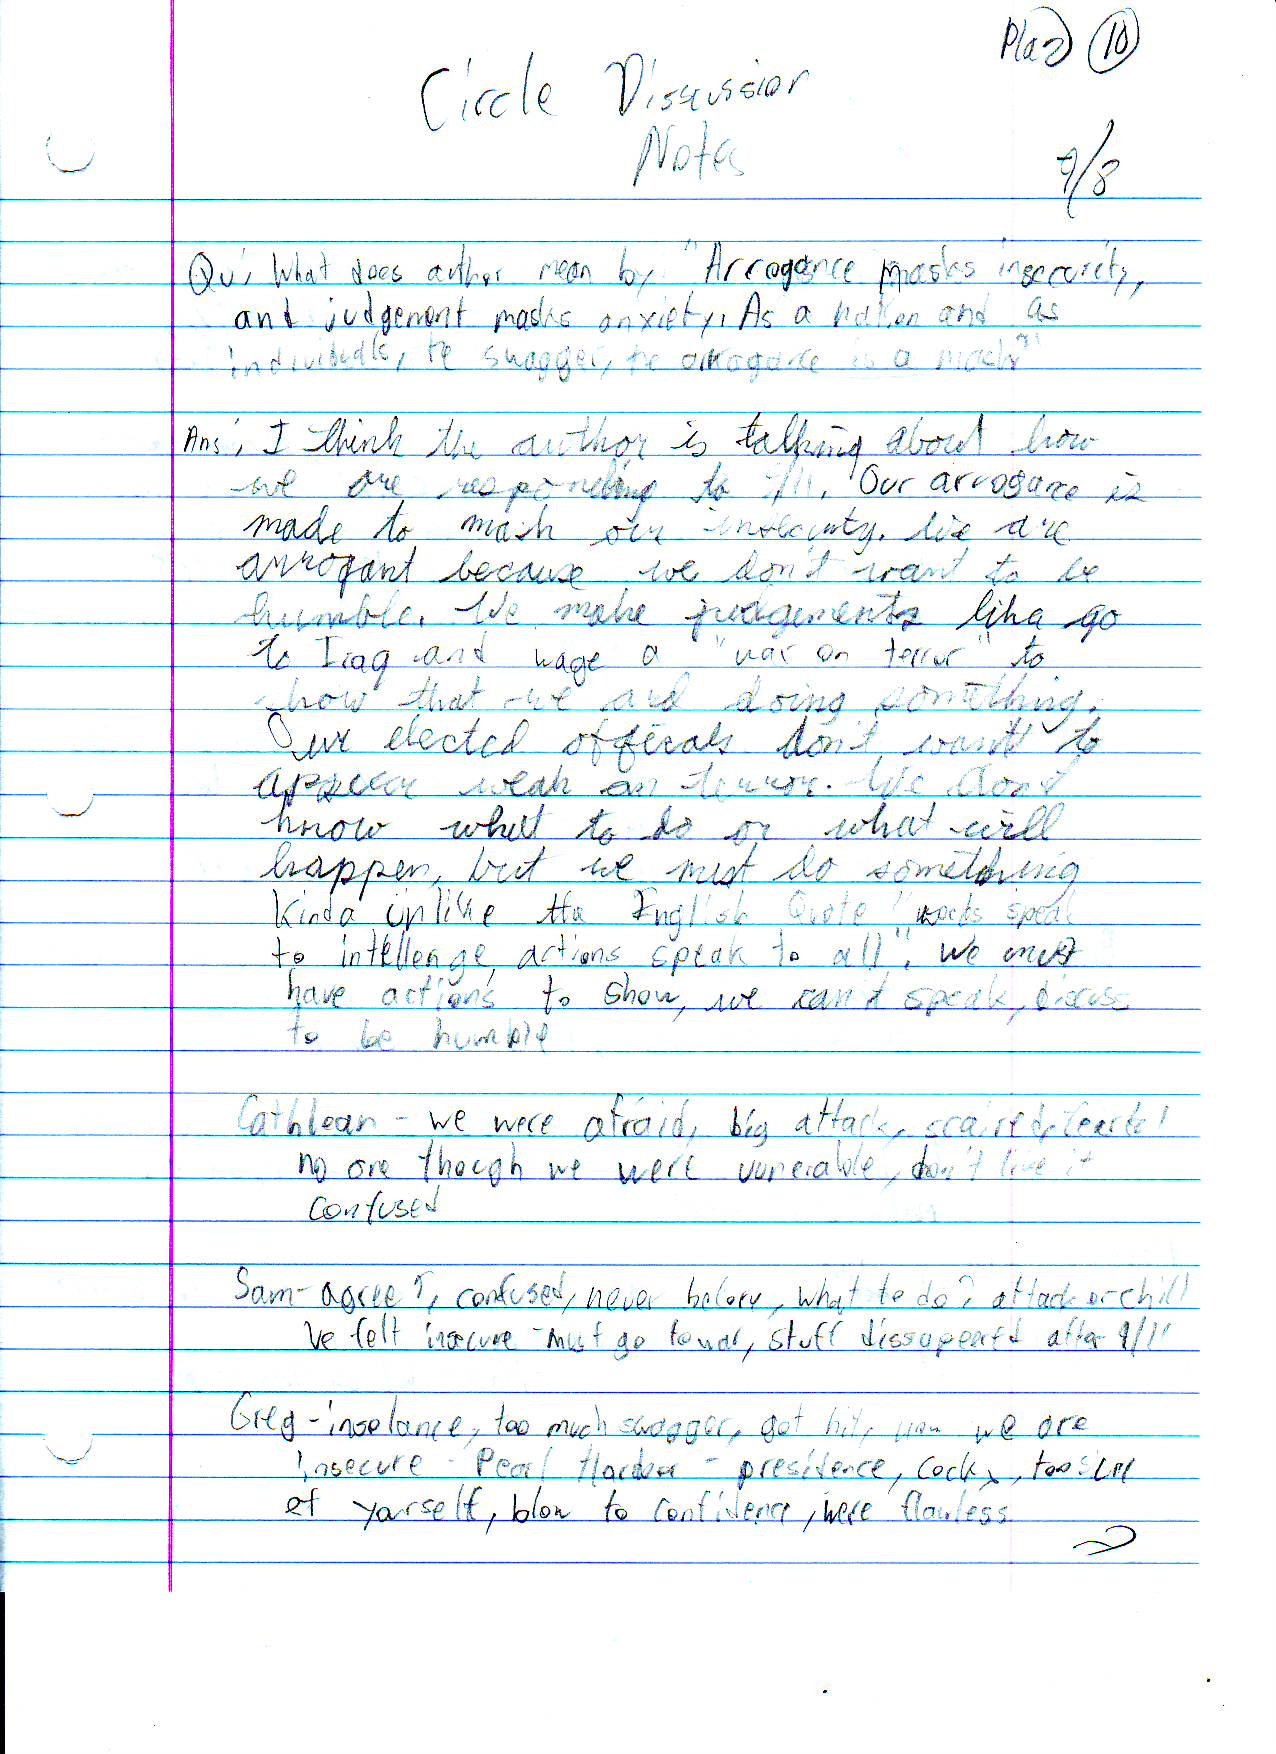 Plaz 10
Circle Disscussion
Notes
9/8
Qu: What does author mean by "Arrogance masks insecurity,
and judgement masks anxiety. As a nation and as
individuals, te swagger, te arrogance is a mask"
Ans: I think the author is talking about how
we are responding to 9/11. Our arrogance is
made to mask our insecurity. We are
arrogant because we don't want to be
humble. We make judgements like go
to Iraq and wage a "war on terror" to
show that we are doing something.
Our elected officals don't want to
appear weak on terror. We don't
know what to do or what will
happen, but we must do something
Kinda unlike the English Quote "words speak
to intellenge, actions speak to all". We must
have actions to show, we can't speak, discuss
to be humble
Cathlean - we were afraid, big attack, scaired,
no one though we were vunerable, don't like it
confused
Sam - agree ↑, confused, never before, what to do? attack or chill
We felt insecure - must go to war, stuff dissapeared after 9/11
Greg - insolance, too much swagger, got hit, now we are
insecure - Pearl Harbor - presidence, cocky, too
of yourself, blow to confidence, were flawless